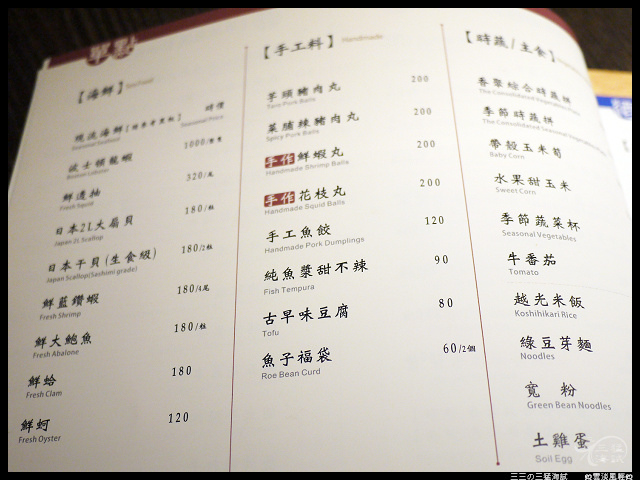 單點
【海鮮】Seafood
現流海鮮 時價
Seasonal Seafood Seasonal Price
波士頓龍蝦 1000/隻
Boston Lobster
鮮透抽 320/尾
Fresh Squid
日本2L大扇貝 180/粒
Japan 2L Scallop
日本干貝(生食級) 180/2粒
Japan Scallop(Sashimi grade)
鮮藍鑽蝦 180/4尾
Fresh Shrimp
鮮大鮑魚 180/粒
Fresh Abalone
鮮蛤 180
Fresh Clam
鮮蚵 120
Fresh Oyster
【手工料】Handmade
芋頭豬肉丸 200
Taro Pork Balls
菜脯辣豬肉丸 200
Spicy Pork Balls
手作鮮蝦丸 200
Handmade Shrimp Balls
手作花枝丸 200
Handmade Squid Balls
手工魚餃 120
Handmade Pork Dumplings
純魚漿甜不辣 90
Fish Tempura
古早味豆腐 80
Tofu
魚子福袋 60/2個
Roe Bean Curd
【時蔬/主食】
香聚綜合時蔬拼
The Consolidated Vegetables
季節時蔬拼
The Consolidated Seasonal Vegetables
帶殼玉米筍
Baby Corn
水果甜玉米
Sweet Corn
季節蔬菜杯
Seasonal Vegetables
牛番茄
Tomato
越光米飯
Koshihikari Rice
綠豆芽麵
Noodles
寬 粉
Green Bean Noodles
土雞蛋
Soil Egg
三三の三猛海賊